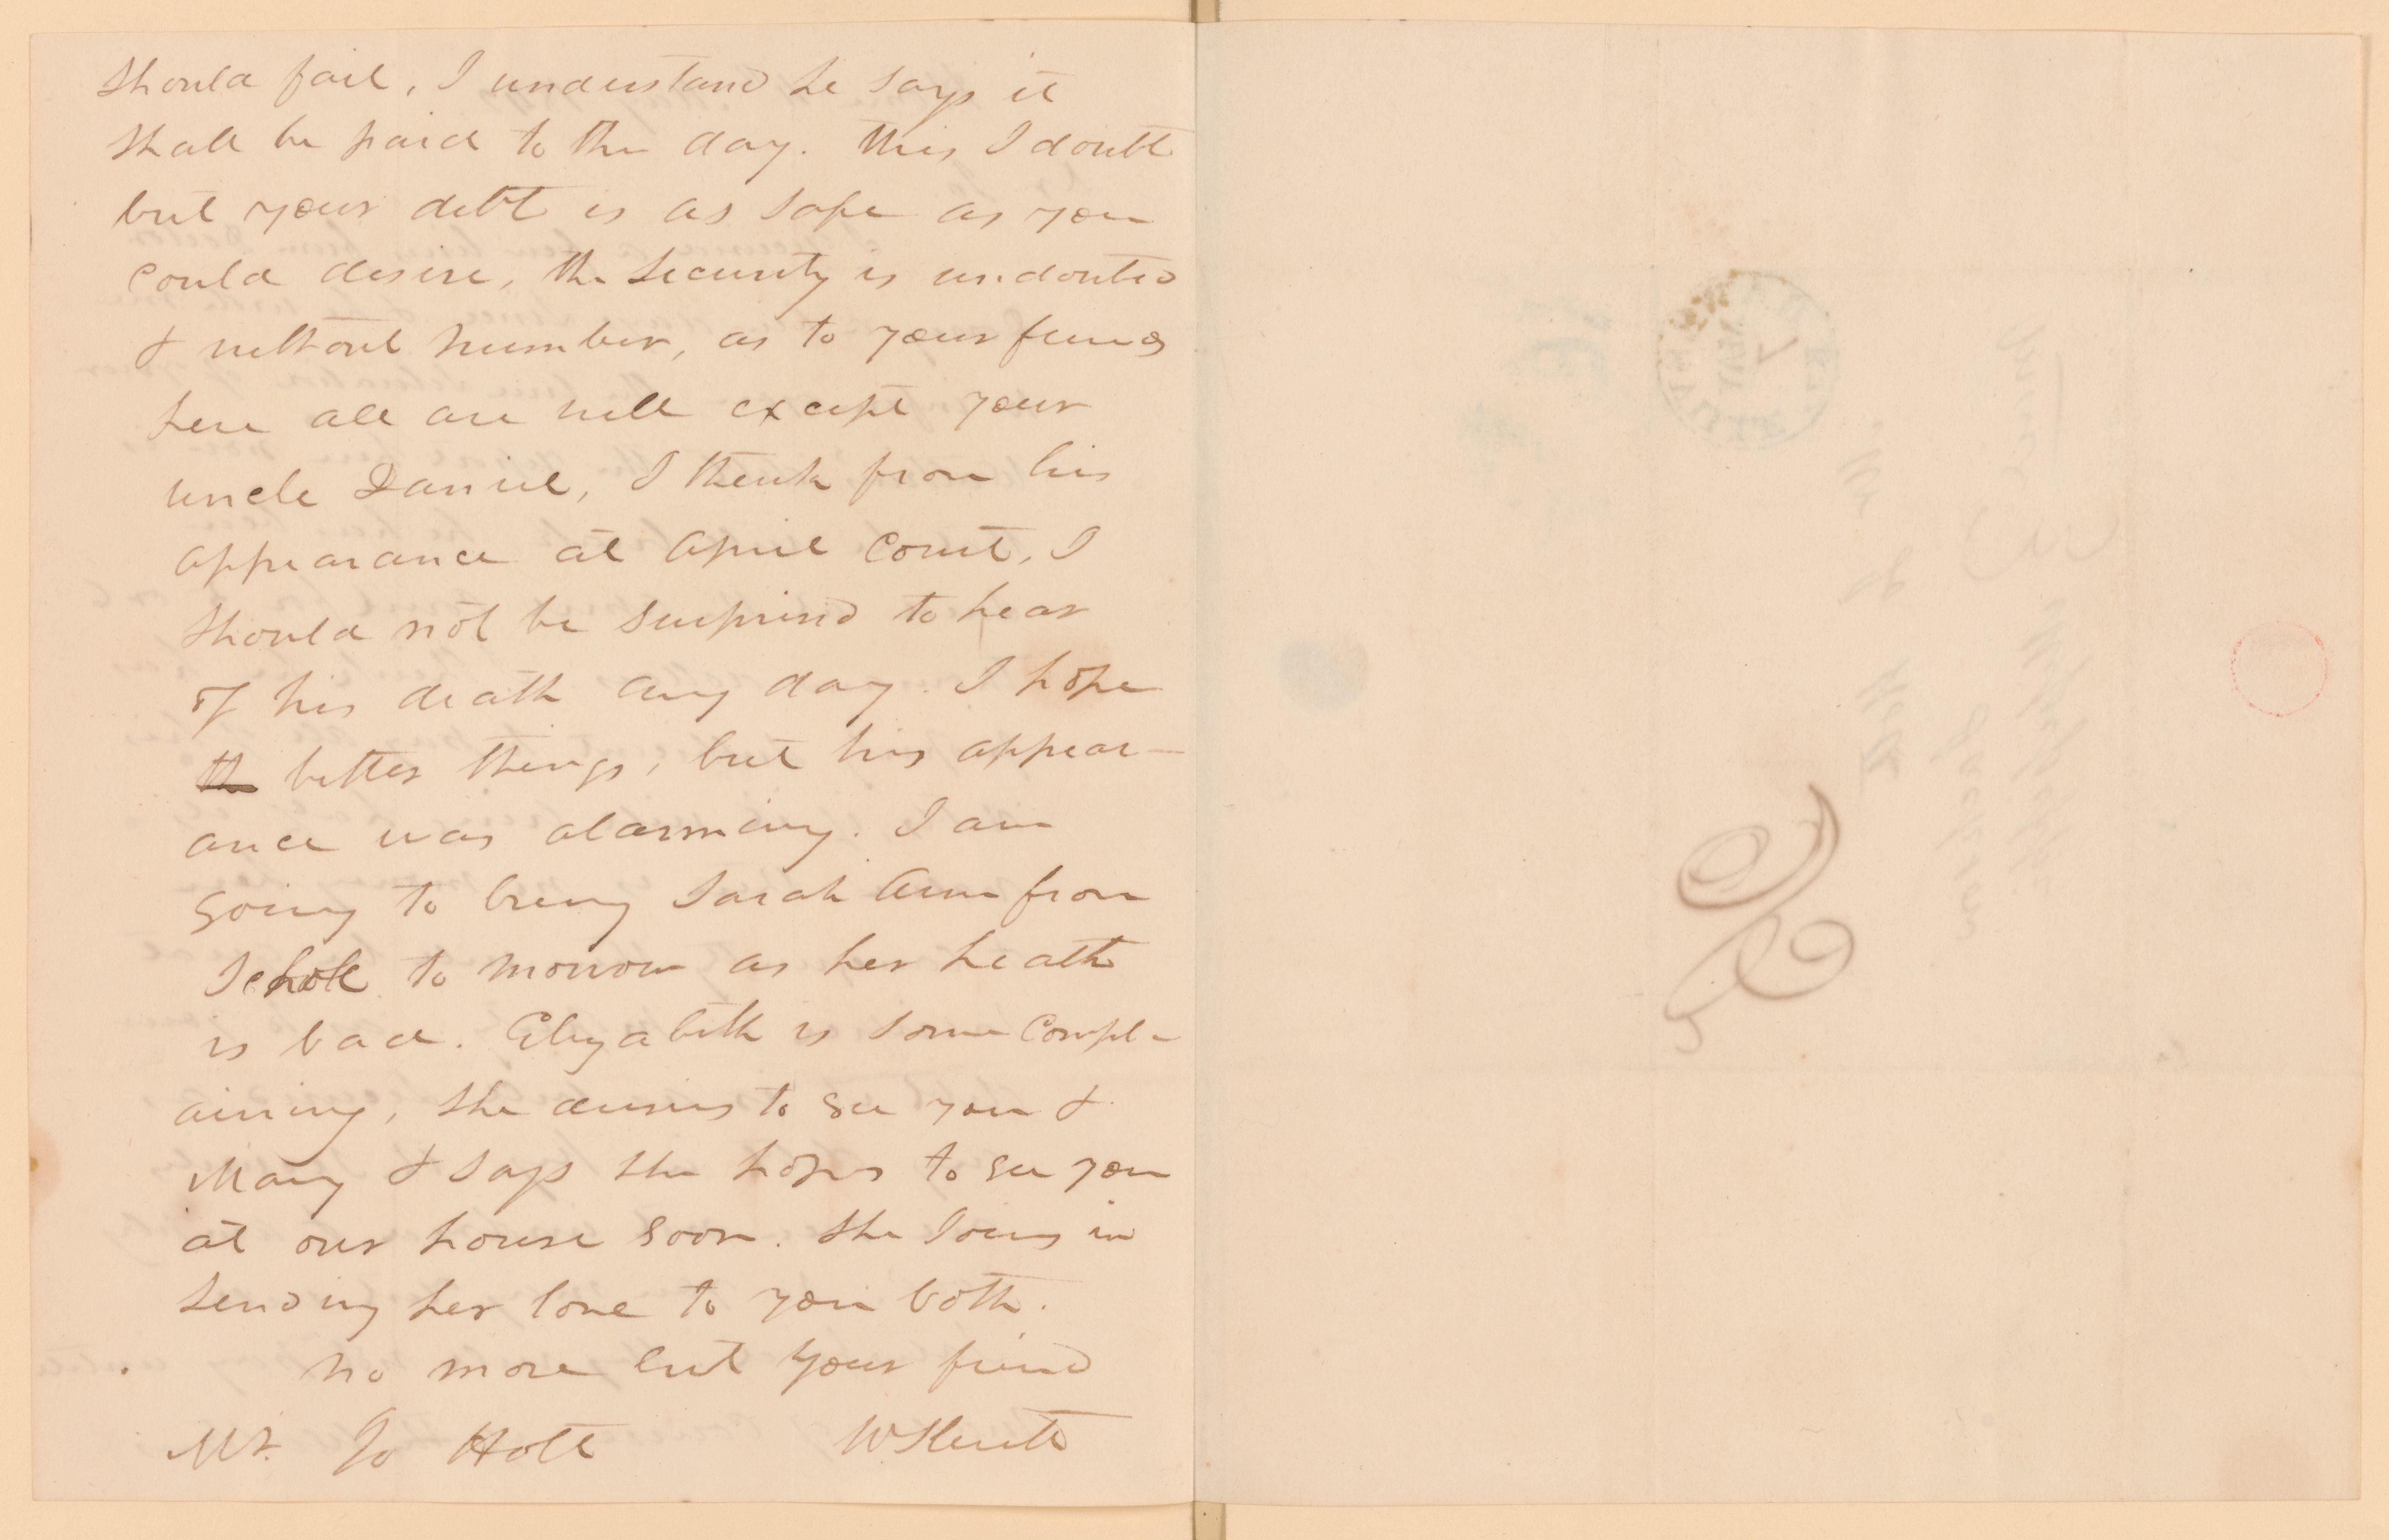 should fail, I understand he says it
shall be paid to the day. this I doubt
but your debt is as safe as you
could desire, the security is undouted
& without number, as to your friends
here all are well except your
uncle Daniel, I think from his
appearance at April Court, I
should not be surprised to hear
of his death any day. I hope
th better things, but his appear-
ance was alarming. I am
going to bring Sarah Ann from
Schole to morrow as her health
is bad. Elizabeth is some compl-
aining, she desires to see you &
Mary & says she hopes to see you
at our house soon. She Joins in
sending her love to you both.
no more but your friend
Mr. Jo Holt